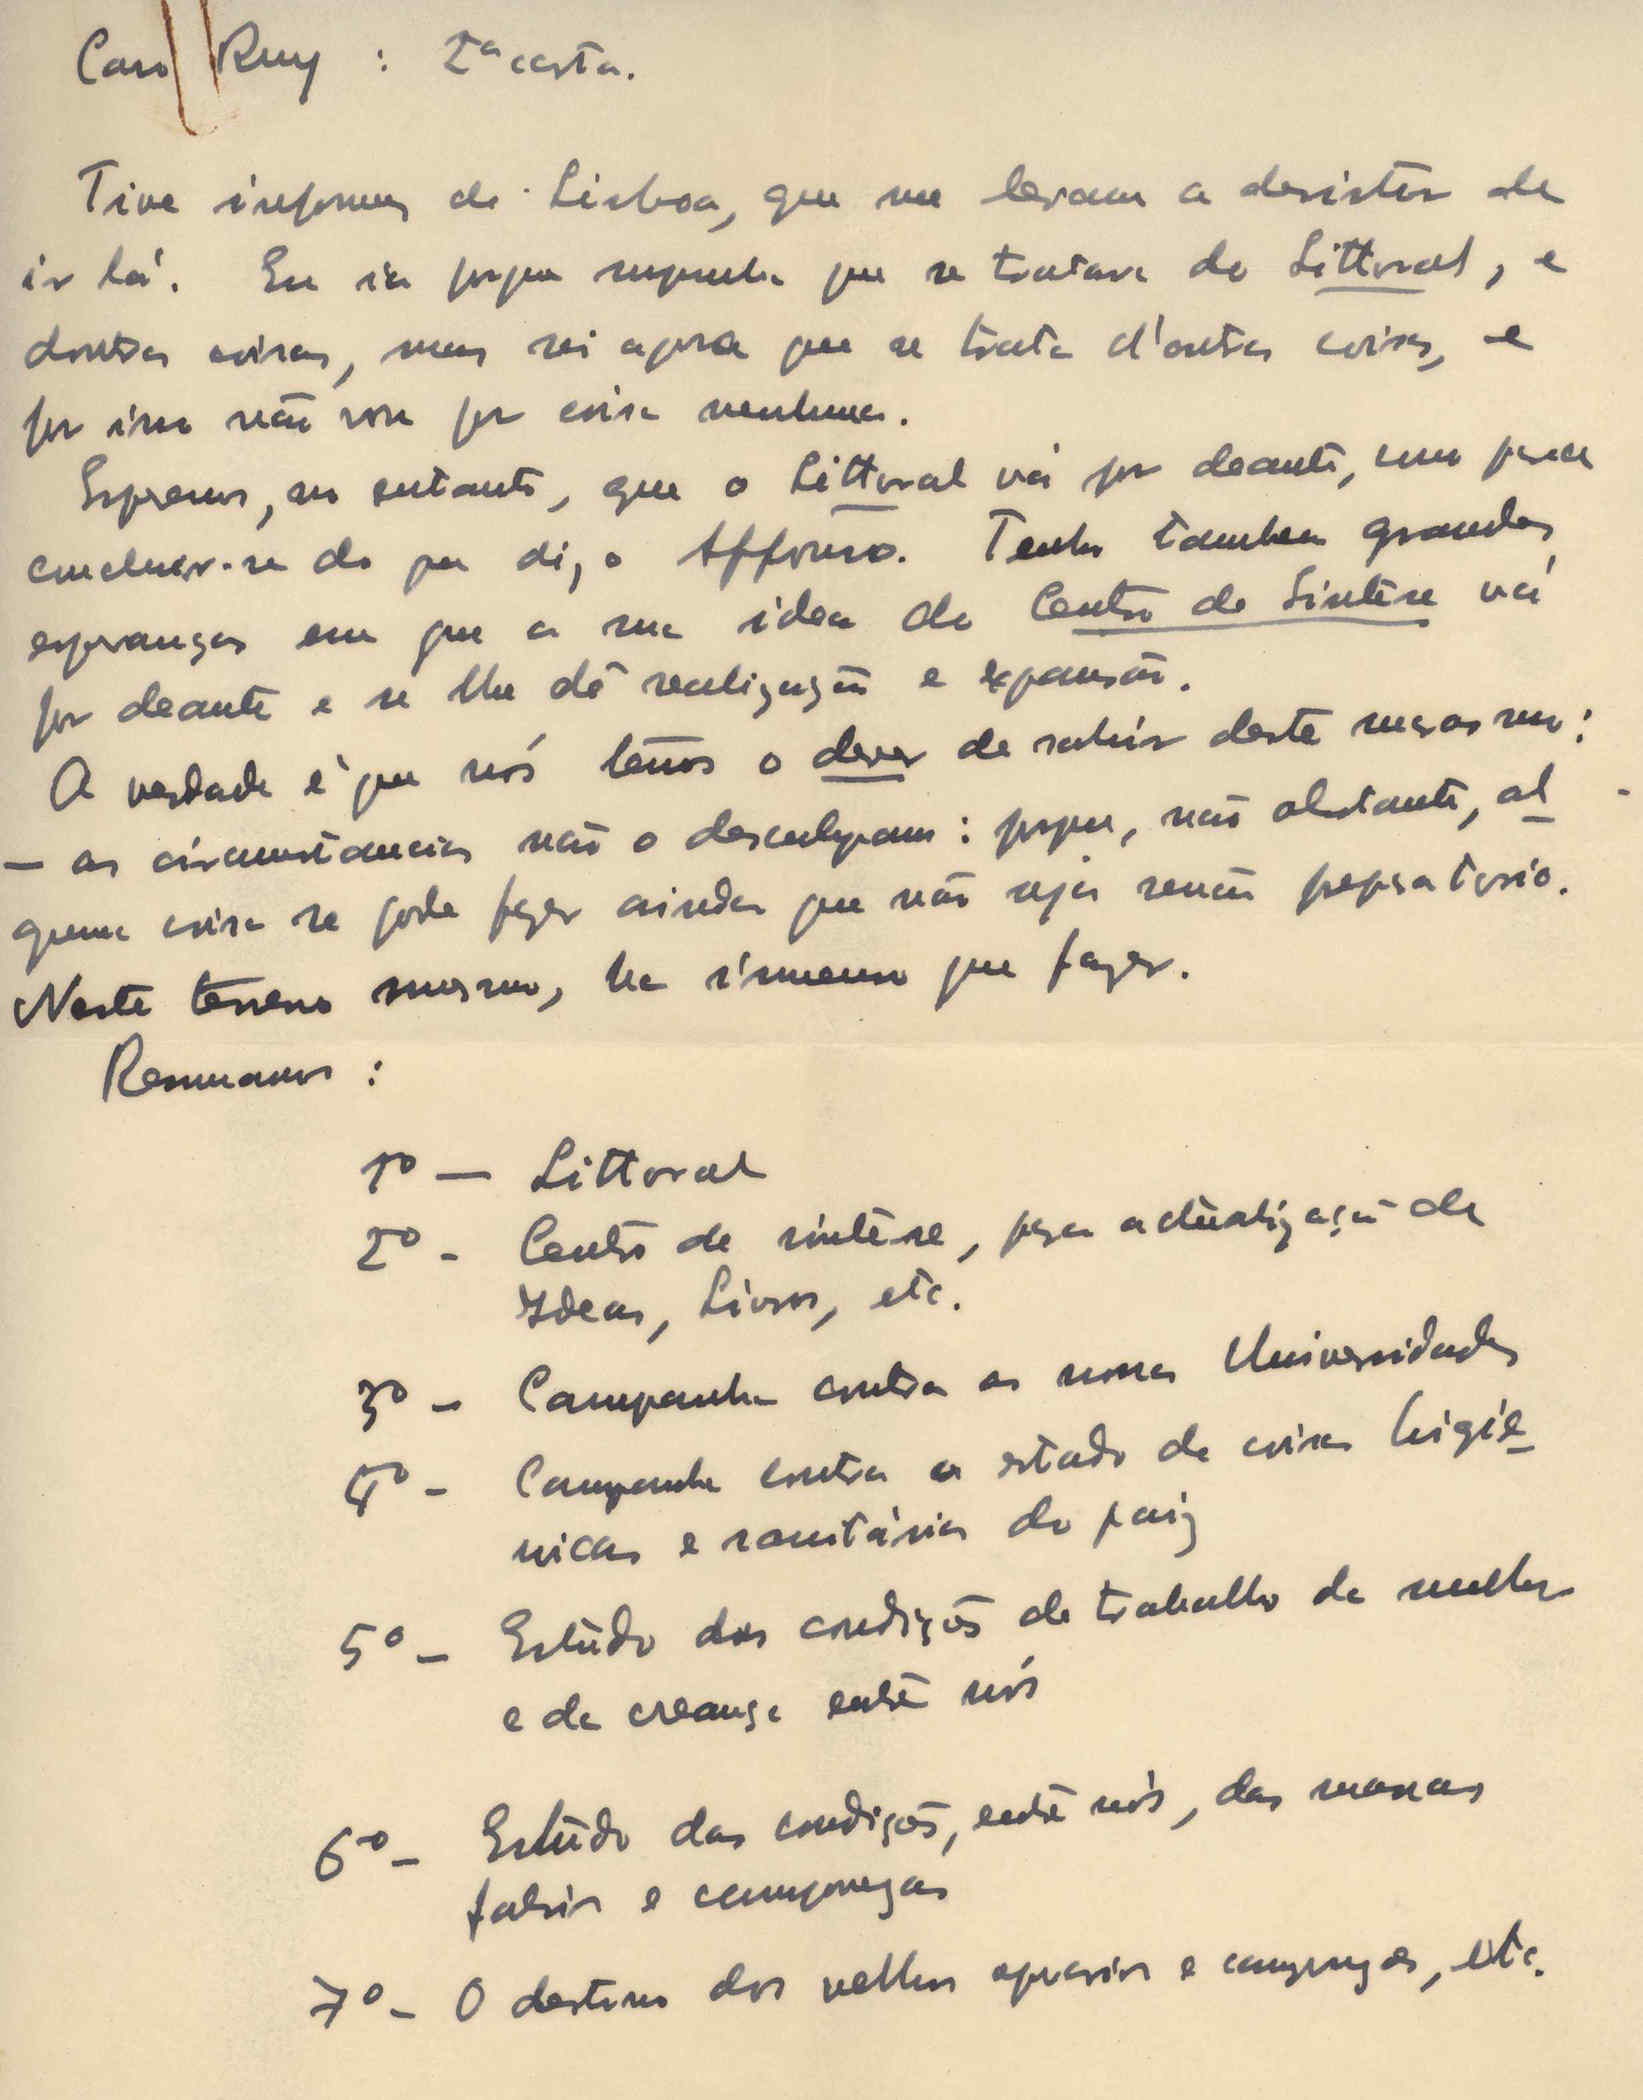 Caro Ruy : 2ª carta.
Tive informes de Lisboa, que me levam a desistir de
ir lá. Eu ia porque suppunha que se tratava do Littoral, e
doutras coisas, mas sei agora que se trata d'outras coisas, e
por isso não vou por coisa nenhuma.
Esperemos, no entanto, que o Littoral vá por deante, como parece
concluir-se do que diz o Affonso. Tenho tambem grandes
esperanças em que a sua idea do Centro de Sintese vá
por deante e se lhe dê realização e expansão.
A verdade é que nós temos o dever de sahir deste marasmo:
— as circunstancias não o desculpam: porque, não obstante, al-
guma coisa se pode fazer ainda que não seja senão preparatorio.
Neste terreno mesmo, ha immenso que fazer.
Resumamos :
1º — Littoral
2º - Centro de sintese, para actualização de
Ideas, Livros, etc.
3º - Campanha contra as nossas Universidades
4º - Campanha contra o estado de coisas higié-
nicas e sanitárias do paiz
5º - Estudo das condições de trabalho da mulher
e da creança entre nós
6º - Estudo das condições, entre nós, das massas
fabris e camponezas
7º - O destino dos velhos operarios e camponezes, etc.